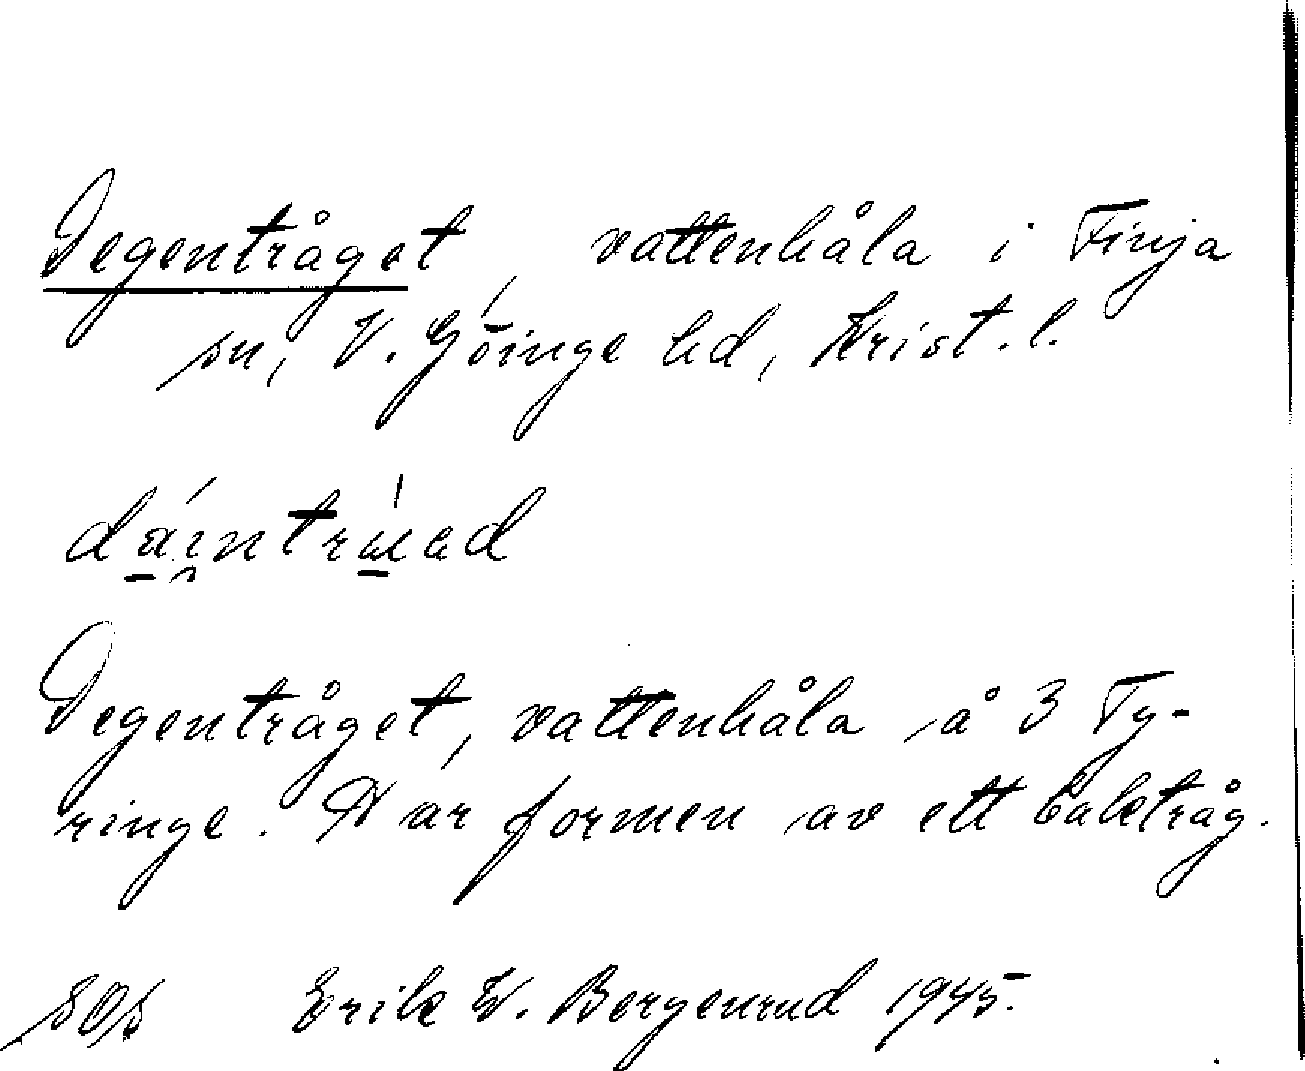 Degentråget, vattenhåla i Finja
sn, V. Göinge hd, Krist. l.
Degentråget, vattenhåla å 3 Ty-
ringe. Har formen av ett baktråg.
SOS Erik W. Bergenrud 1945.